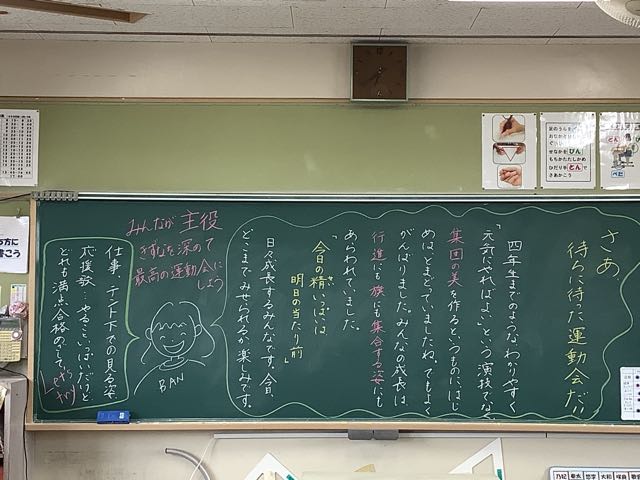 さあ
待ちに待った運動会だ!!
四年生までのような わかりやすく
「元気にやればよい」という演技でなく
集団の美を作るというものに、はじ
めは、とまどっていましたね。でもよく
がんばりました。みんなの成長は
行進にも旗にも集合する姿にも
あらわれていました。
「今日の精いっぱいは
明日の当たり前」
日々成長するみんなです。今日、
どこまでみせられるか楽しみです。
みんなが主役
きずなを深めて
最高の運動会に
しよう
BAN
仕事・テント下での見る姿
応援歌…やること
どれも満点合格